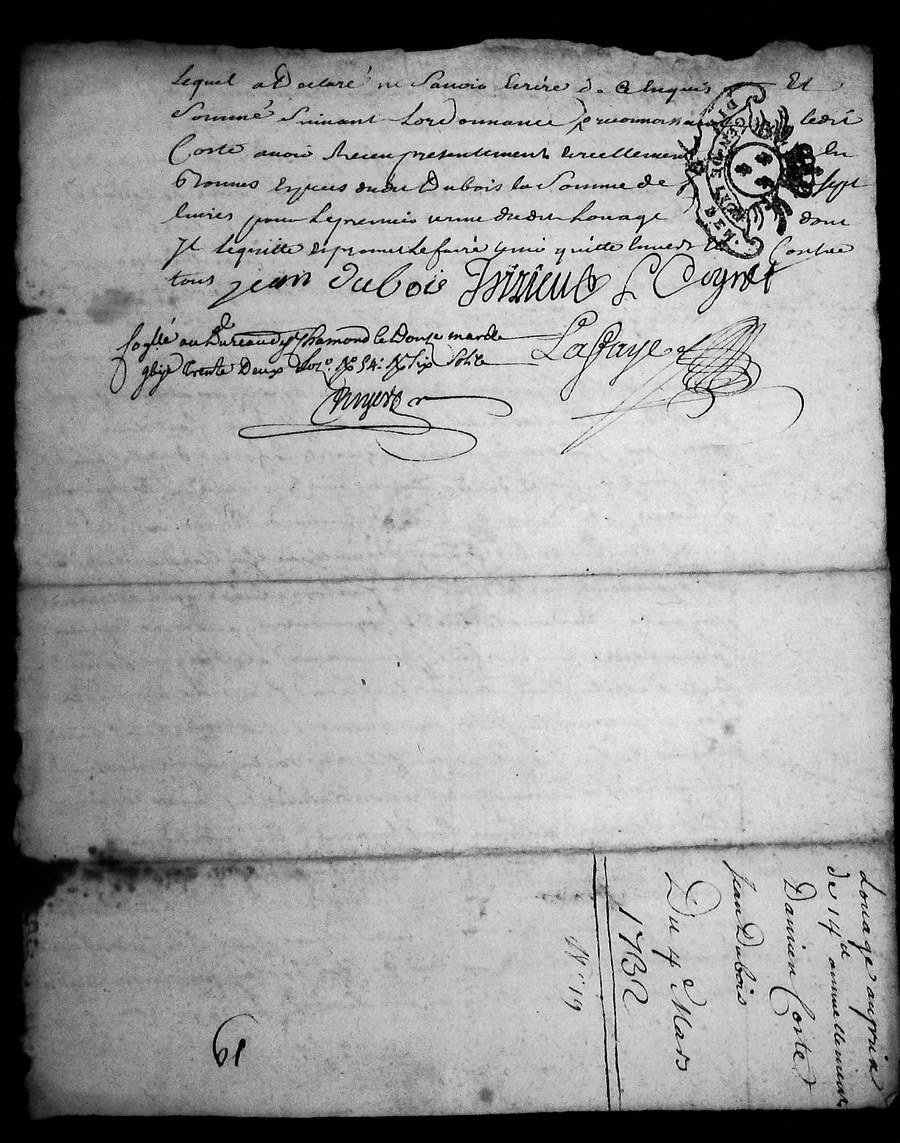 Lequel a Declaré ne Savoir Ecrire de ce Enquis Et
Sommé Suivant Lordonnance reconnoissant ledit
Coste avoir Receu presentement et reellement En
Bonnes Especes dudit Dubois la Somme de Sept
livres pour le premier terme dudit Louage dont
Il le quitte et promet le faire quitte Envers Et Contre
tous jean dubois Thizieu L Cognet
au Bureau de St Chamond le Douze marde
Trente Deux
LaFaye
Louage au prix
de 14 annuellement
Damien Coste
Jean Dubois
Du 4 Mars
1732
N° 19
19
MER